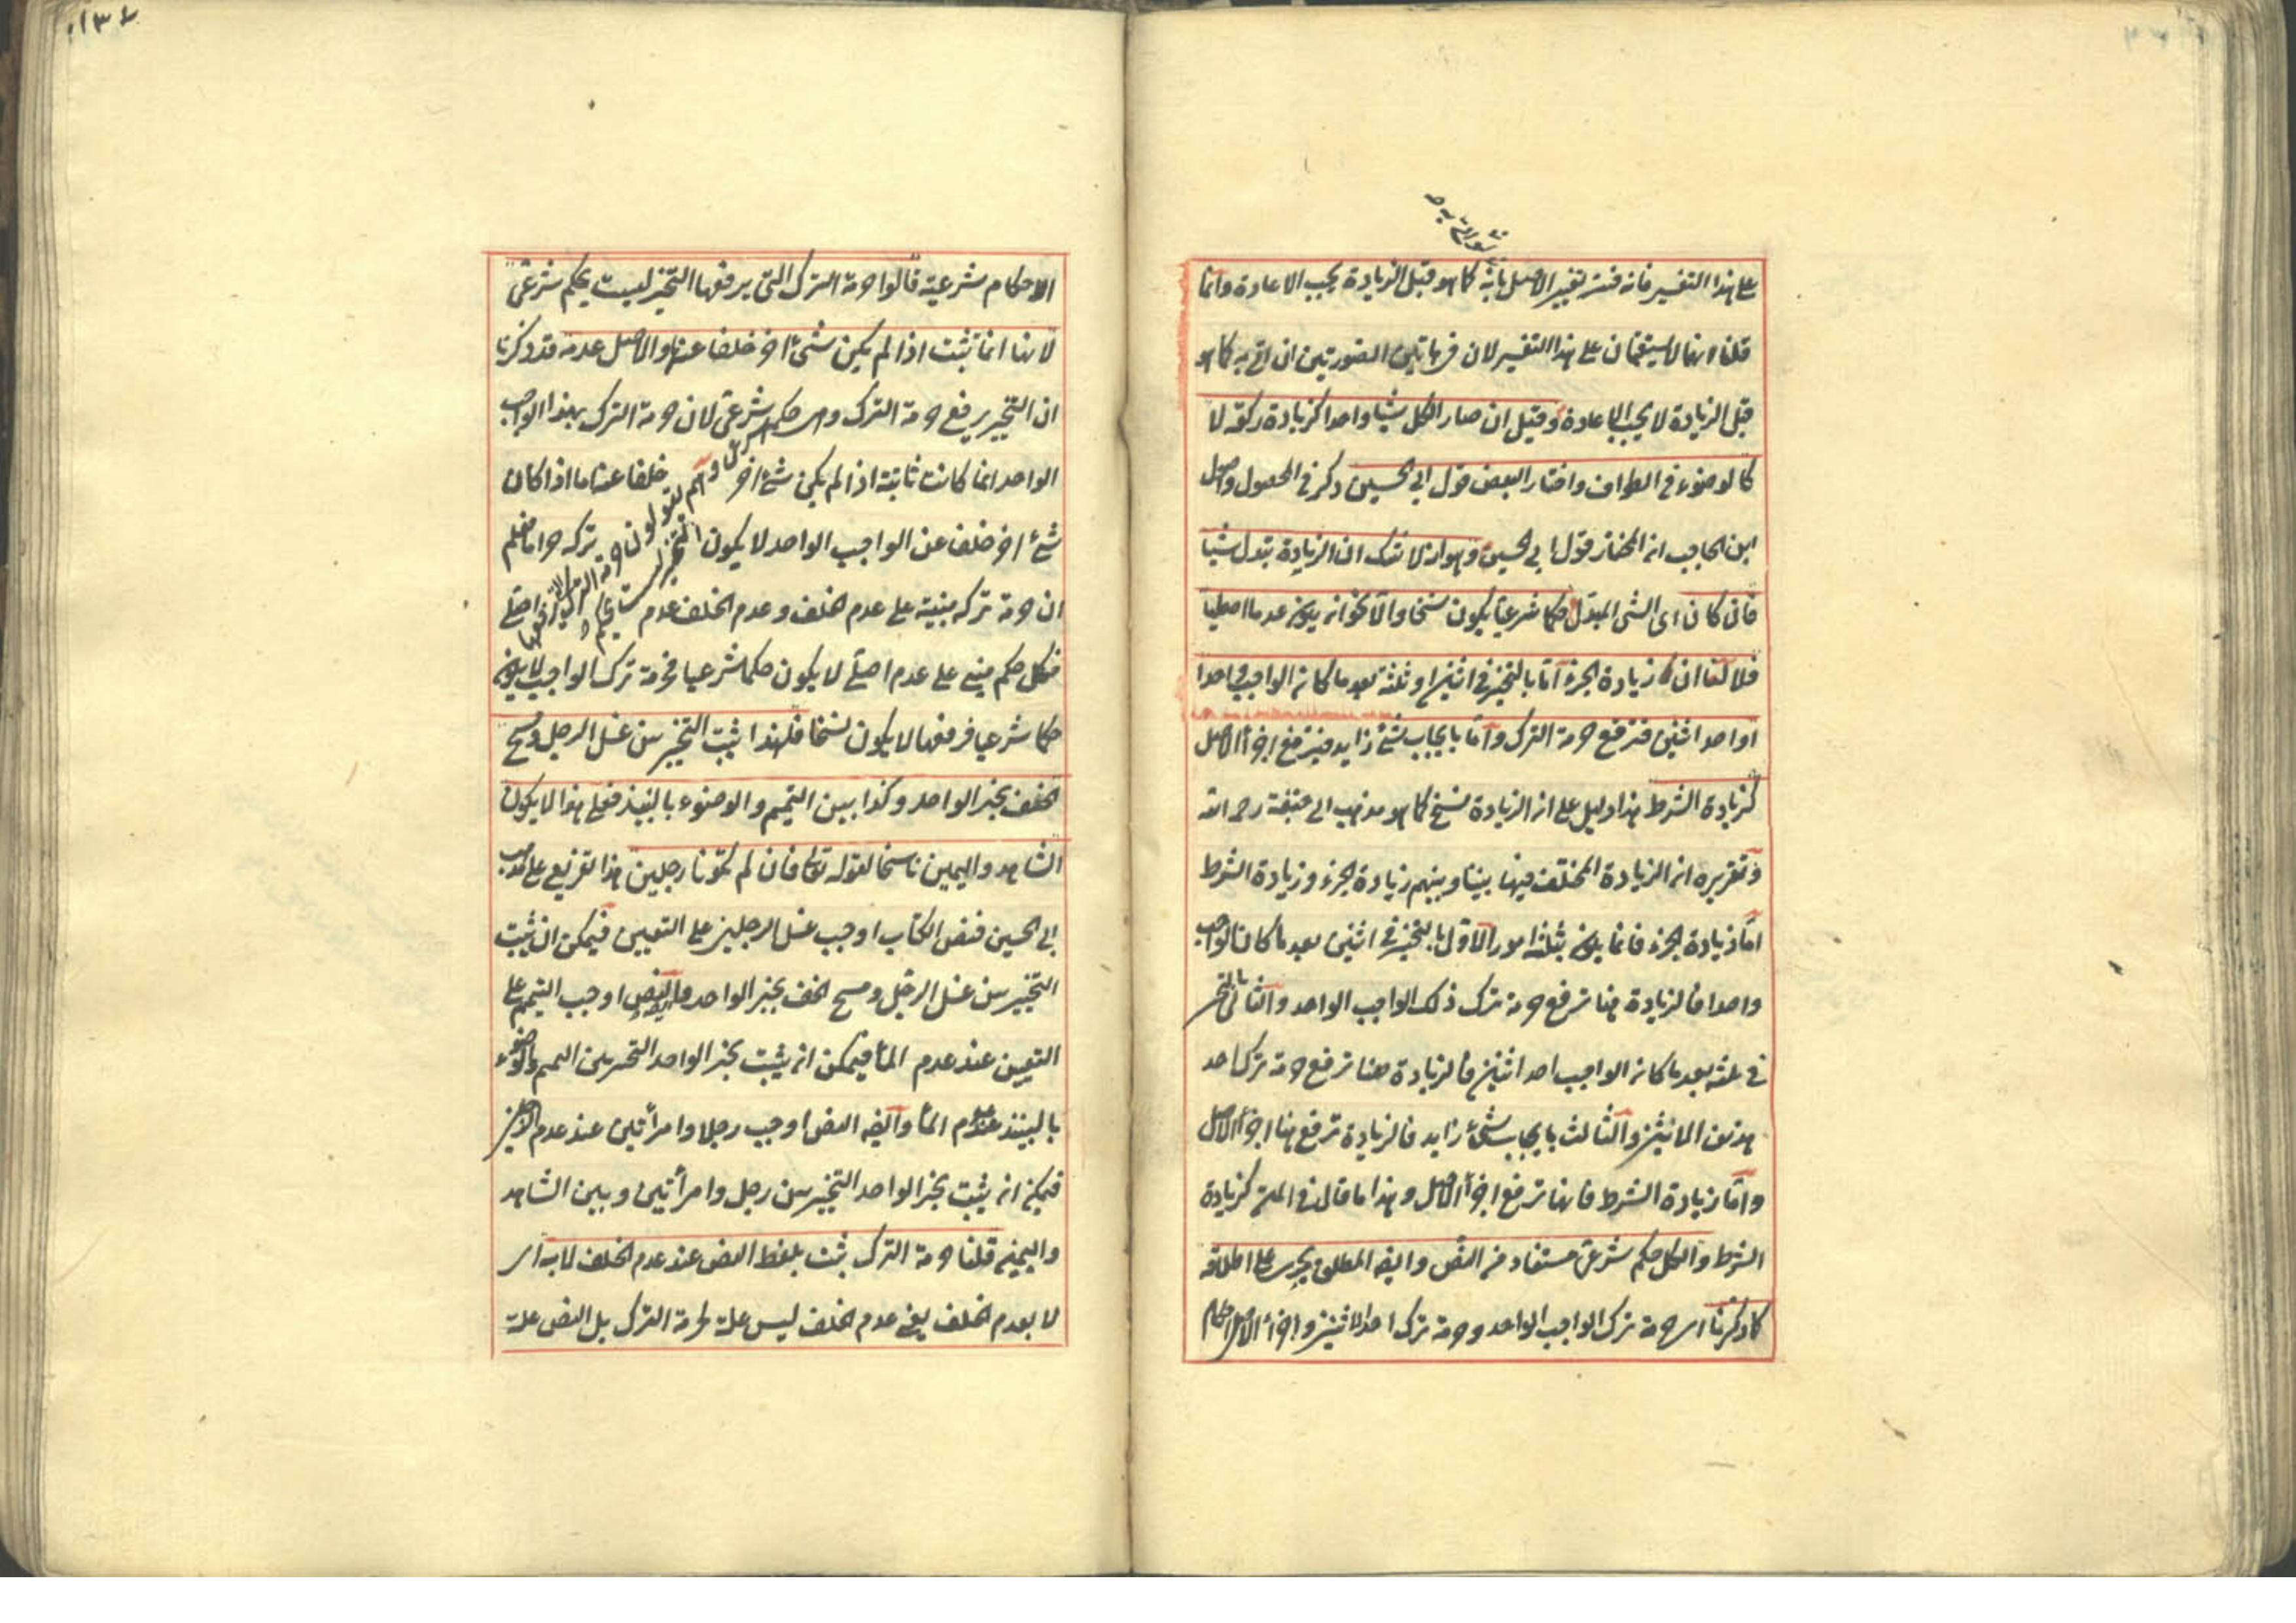 على هذا التفسير فانه فسر تغيير الاصل بانه كما هو قبل الزيادة يجب الاعادة وانما
قلنا انهما لا يستقيمان على هذا التفسير لان في هاتين الصورتين ان اتى به كما هو
قبل الزيادة لا يجب الاعادة وقيل ان صار الكل شيئا واحدا كزيادة ركعة لا
كالوضوء في الطواف واختار البعض قول ابي الحسين ذكر في المحصول واصل
ابن الحاجب ان المختار قول ابي الحسين وهو انه لا شك ان الزيادة تبدل شيئا
فان كان اى الشئ المبدل حكما شرعيا يكون نسخا والا كان يكون عدما اصليا
فلا لنا ان زيادة الجزء اما بالتخيير في اثنين او ثلثة بعد ما كان الواجب واحدا
او احد اثنين فترفع حرمة الترك واما بايجاب شئ زايد فيرتفع اجزاء الاصل
كزيادة الشرط هذا دليل على ان الزيادة نسخ كما هو مذهب ابي حنيفة رحمه الله
وتقريره ان الزيادة المختلف فيها بيننا وبينهم زيادة الجزء وزيادة الشرط
اما زيادة الجزء فانما يكون بثلثة امور الاول بالتخيير في اثنين بعد ما كان الواجب
واحدا فالزيادة هنا ترفع حرمة ترك ذلك الواجب الواحد والثاني بالتخيير
في ثلثة بعد ما كان الواجب احد اثنين فالزيادة هنا ترفع حرمة ترك احد
هذين الاثنين والثالث بايجاب شئ زايد فالزيادة ترفع هنا اجزاء الاصل
واما زيادة الشرط فانها ترفع اجزاء الاصل وهذا ما قال في المتن كزيادة
الشرط والكل حكم شرعى مستفاد من النص وايضا المطلق يجرى على اطلاقه
كما ذكرنا اى حرمة ترك الواجب الواحد وحرمة ترك احد الاثنين واجزاء الاصل احكام
الاحكام شرعية قالوا حرمة الترك التى يرفعها التخيير ليست بحكم شرعى
لانها انما تثبت اذا لم يكن شئ اخر خلفا عنها والاصل عدمه قد ذكرنا
ان التخيير يرفع حرمة الترك وهى حكم شرعى لان حرمة الترك بهذا الواجب
الواحد انما كانت ثابتة اذا لم يكن شئ اخر خلفا عنه اما اذا كان
شئ اخر خلف عن الواجب الواحد لا يكون تركه حراما فعلم
ان حرمة تركه مبنية على عدم الخلف وعدم الخلف عدم اصلى
فكل حكم مبنى على عدم اصلى لا يكون حكما شرعيا فحرمة ترك الواجب لا يكون
حكما شرعيا فرفعها لا يكون نسخا فلهذا يثبت التخيير بين غسل الرجل ومسح
الخف بخبر الواحد وكذا بين التيمم والوضوء بالنبيذ فعلى هذا لا يكون
الشاهد واليمين ناسخا لقوله تعالى فان لم يكونا رجلين هذا تفريع على مذهب
ابي الحسين فنص الكتاب اوجب غسل الرجلين على التعيين فيمكن ان يثبت
التخيير بين غسل الرجل ومسح الخف بخبر الواحد وايضا النص اوجب التيمم على
التعيين عند عدم الماء فيمكن ان يثبت بخبر الواحد التخيير بين التيمم والوضوء
بالنبيذ عند عدم الماء وايضا النص اوجب رجلا وامرأتين عند عدم الرجلين
فيمكن ان يثبت بخبر الواحد التخيير بين رجل وامرأتين وبين الشاهد
واليمين قلنا حرمة الترك يثبت بلفظ النص عند عدم الخلف لا به اى
لا بعدم الخلف يعنى عدم الخلف ليس علة لحرمة الترك بل النص علة